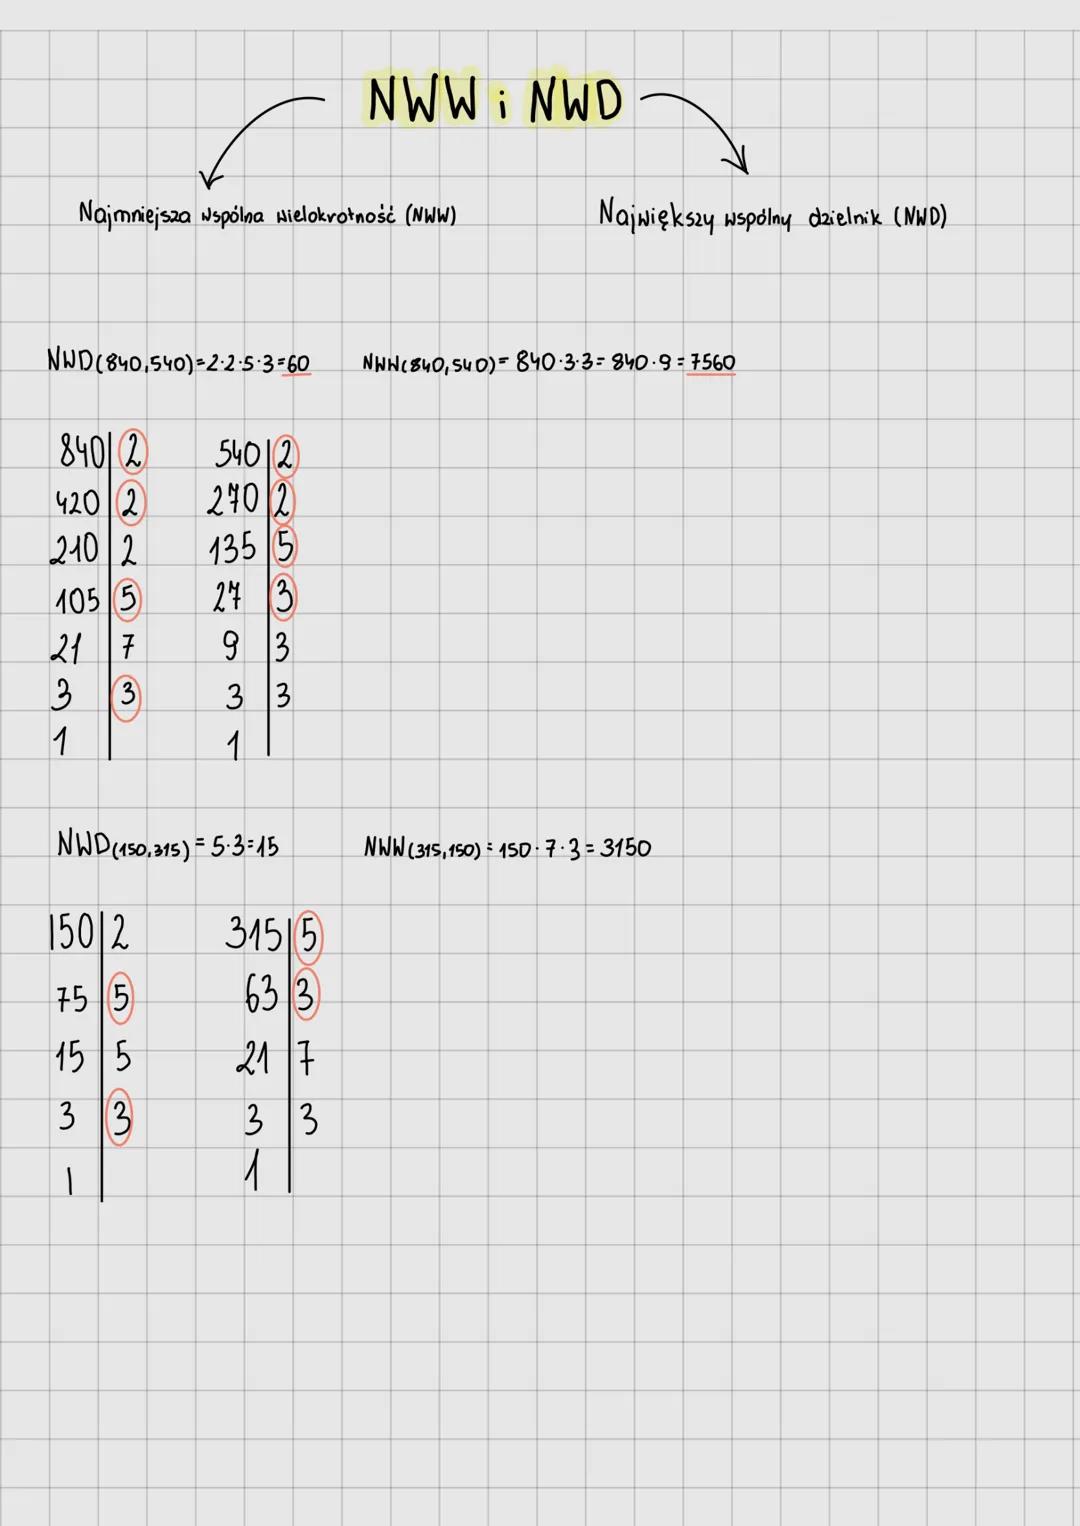 NWW i NWD
Najmniejsza wspólna wielokrotność (NWW)
Największy wspólny dzielnik (NWD)
NWD(840,540)=2·2·5·3=60
NWW(840,540)=840·3·3=840·9=7560
840 2
420 2
210 2
105 5
21 7
3 3
1
540 2
270 2
135 5
27 3
9 3
3 3
1
NWD(150,315)=5·3=15
NWW(315,150)=150·7·3=3150
150 2
75 5
15 5
3 3
1
315 5
63 3
21 7
3 3
1